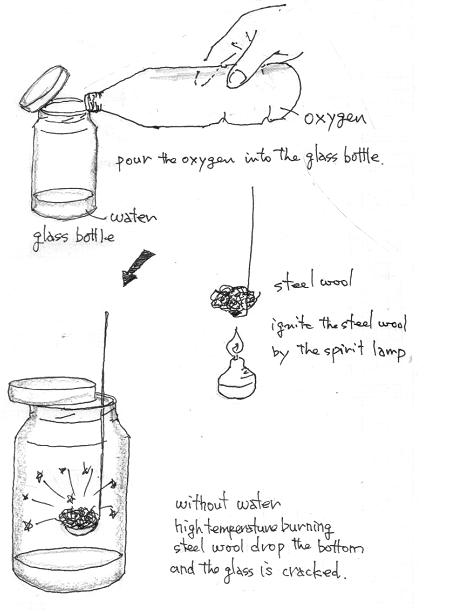 oxygen
pour the oxygen into the glass bottle.
water
glass bottle
steel wool
ignite the steel wool
by the spirit lamp
without water
high temperature burning
steel wool drop the bottom
and the glass is cracked.